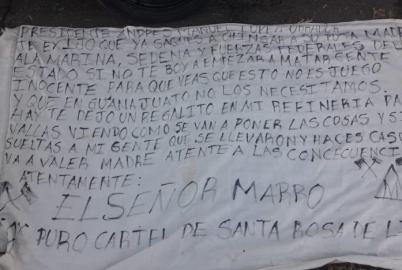 PRESIDENTE ANDRES MANUEL
TE EXIJO QUE YA SAQUES LA
A LA MARINA, SEDENA Y FUERZAS FEDERALES DEL
ESTADO SI NO TE BOY A EMPEZAR A MATAR GENTE
INOCENTE PARA QUE VEAS QUE ESTO NO ES JUEGO
Y QUE EN GUANAJUATO NO LOS NECESITAMOS.
HAY TE DEJO UN REGALITO EN MI REFINERIA PA
VALLAS VIENDO COMO SE VAN A PONER LAS COSAS Y SI
SUELTAS A MI GENTE QUE SE LLEVARON Y HACES CASO
VA A VALER MADRE ATENTE A LAS CONCECUENCI
ATENTAMENTE:
EL SEÑOR MARRO
PURO CARTEL DE SANTA ROSA DE L